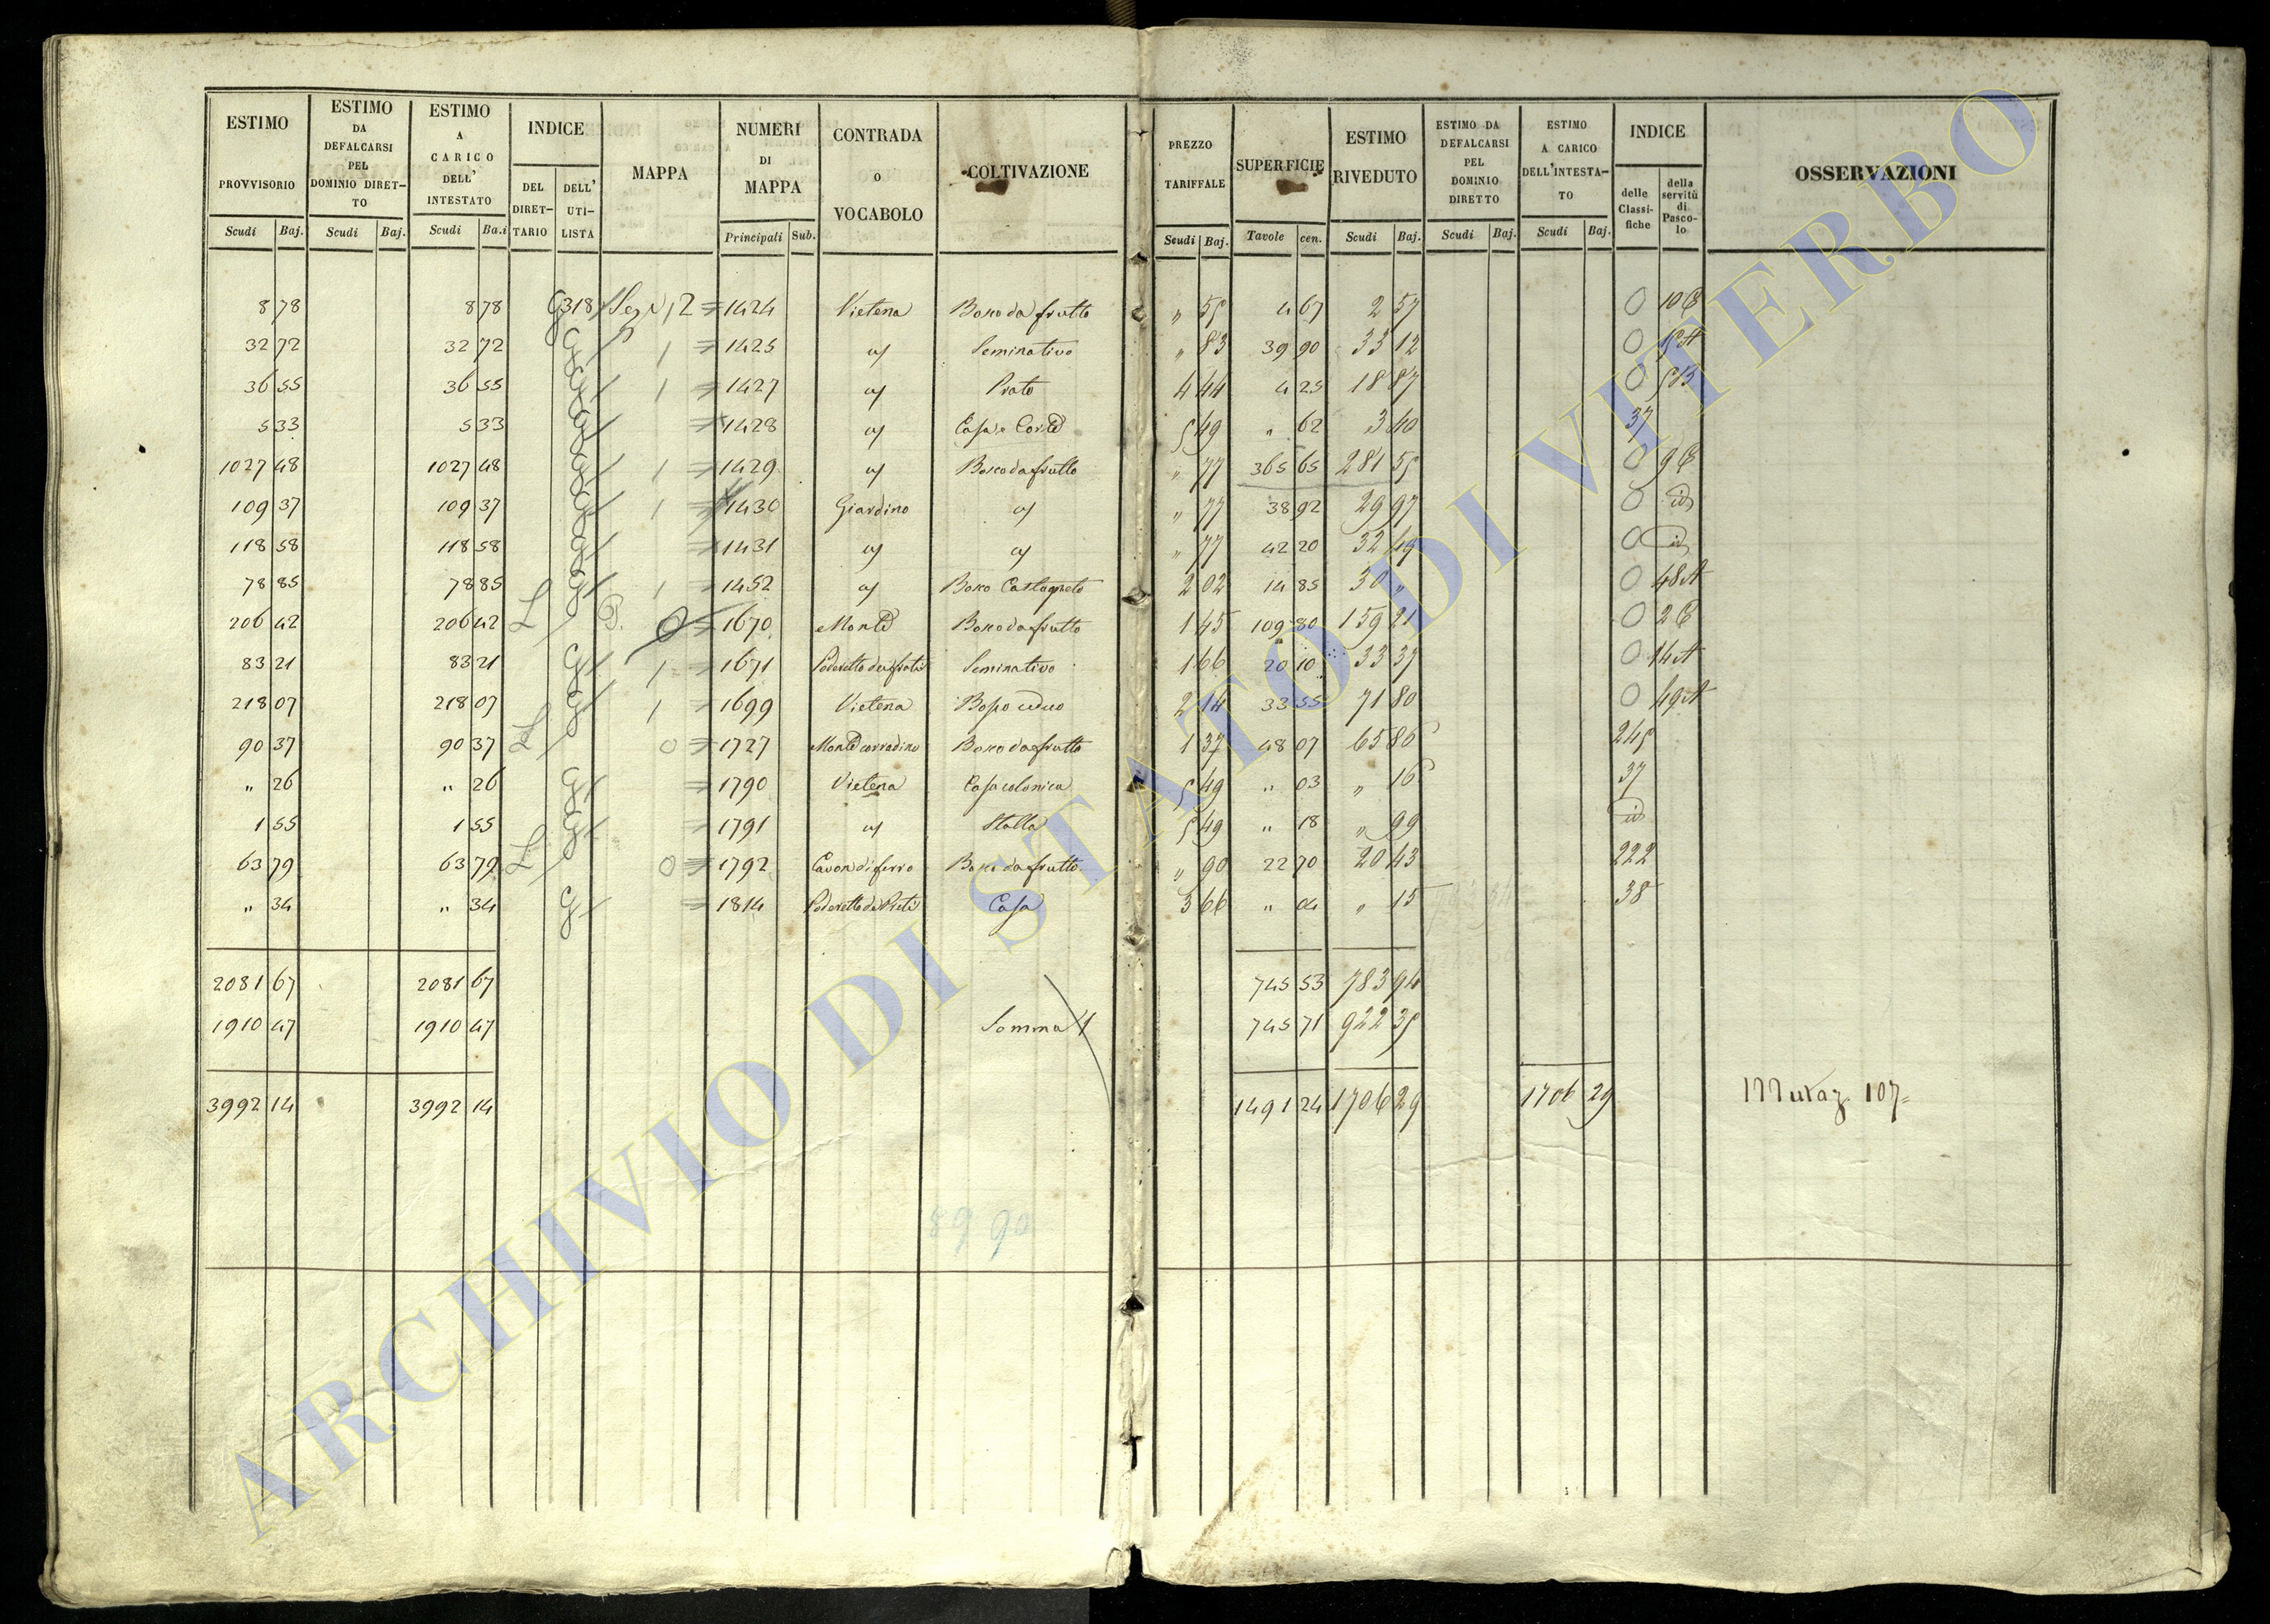 ESTIMO PROVVISORIO Scudi Baj. | ESTIMO DA DEFALCARSI PEL DOMINIO DIRETTO Scudi Baj. | ESTIMO A CARICO DELL' INTESTATO Scudi Ba.i | INDICE DEL DIRETTARIO DELL' UTILISTA | MAPPA | NUMERI DI MAPPA Principali Sub. | CONTRADA O VOCABOLO | COLTIVAZIONE | PREZZO TARIFFALE Scudi Baj. | SUPERFICIE Tavole cen. | ESTIMO RIVEDUTO Scudi Baj. | ESTIMO DA DEFALCARSI PEL DOMINIO DIRETTO Scudi Baj. | ESTIMO A CARICO DELL'INTESTATO Scudi Baj. | INDICE delle Classifiche della servitù di Pascolo | OSSERVAZIONI
8 78 8 78 G 318 Seg. 12 1424 Vietena Bosco da frutto " 55 4 67 2 57 0 10
32 72 32 72 G 1 1425 " Seminativo " 83 39 90 33 12 0 15 A
36 55 36 55 G 1 1427 " Prato 4 44 4 25 18 87 0 5 B
5 33 5 33 G 1428 " Casa e Corte 5 49 " 62 3 40 37
1027 48 1027 48 G 1 1429 " Bosco da frutto " 77 365 65 281 55 0 9
109 37 109 37 G 1 1430 Giardino " " 77 38 92 29 97 0 id
118 58 118 58 G 1431 " " " 77 42 20 32 49 0 id
78 85 78 85 G 1 1452 " Bosco Castagneto 2 02 14 85 30 " 0 48 A
206 42 206 42 L 0 1670 Monte Bosco da frutto 1 45 109 80 159 21 0 2
83 21 83 21 G 1 1671 Poderetto dei frati Seminativo 1 66 20 10 33 37 0 14 A
218 07 218 07 G 1 1699 Vietena Bosco ceduo 2 14 33 55 71 80 0 49 A
90 37 90 37 L 0 1727 Monte corradino Bosco da frutto 1 37 48 07 65 86 245
" 26 " 26 G 1790 Vietena Casa colonica 5 49 " 03 " 16 37
1 55 1 55 G 1791 " Stalla 5 49 " 18 " 99 id
63 79 63 79 L 0 1792 Cavon di ferro Bosco da frutto " 90 22 70 20 43 222
" 34 " 34 G 1814 Poderetto Casa 3 66 " 04 " 15 38
2081 67 2081 67 745 53 783 94
1910 47 1910 47 Somma 745 71 922 35
3992 14 3992 14 1491 24 1706 29 1706 29 Mutaz. 107
89 90
ARCHIVIO DI STATO DI VITERBO